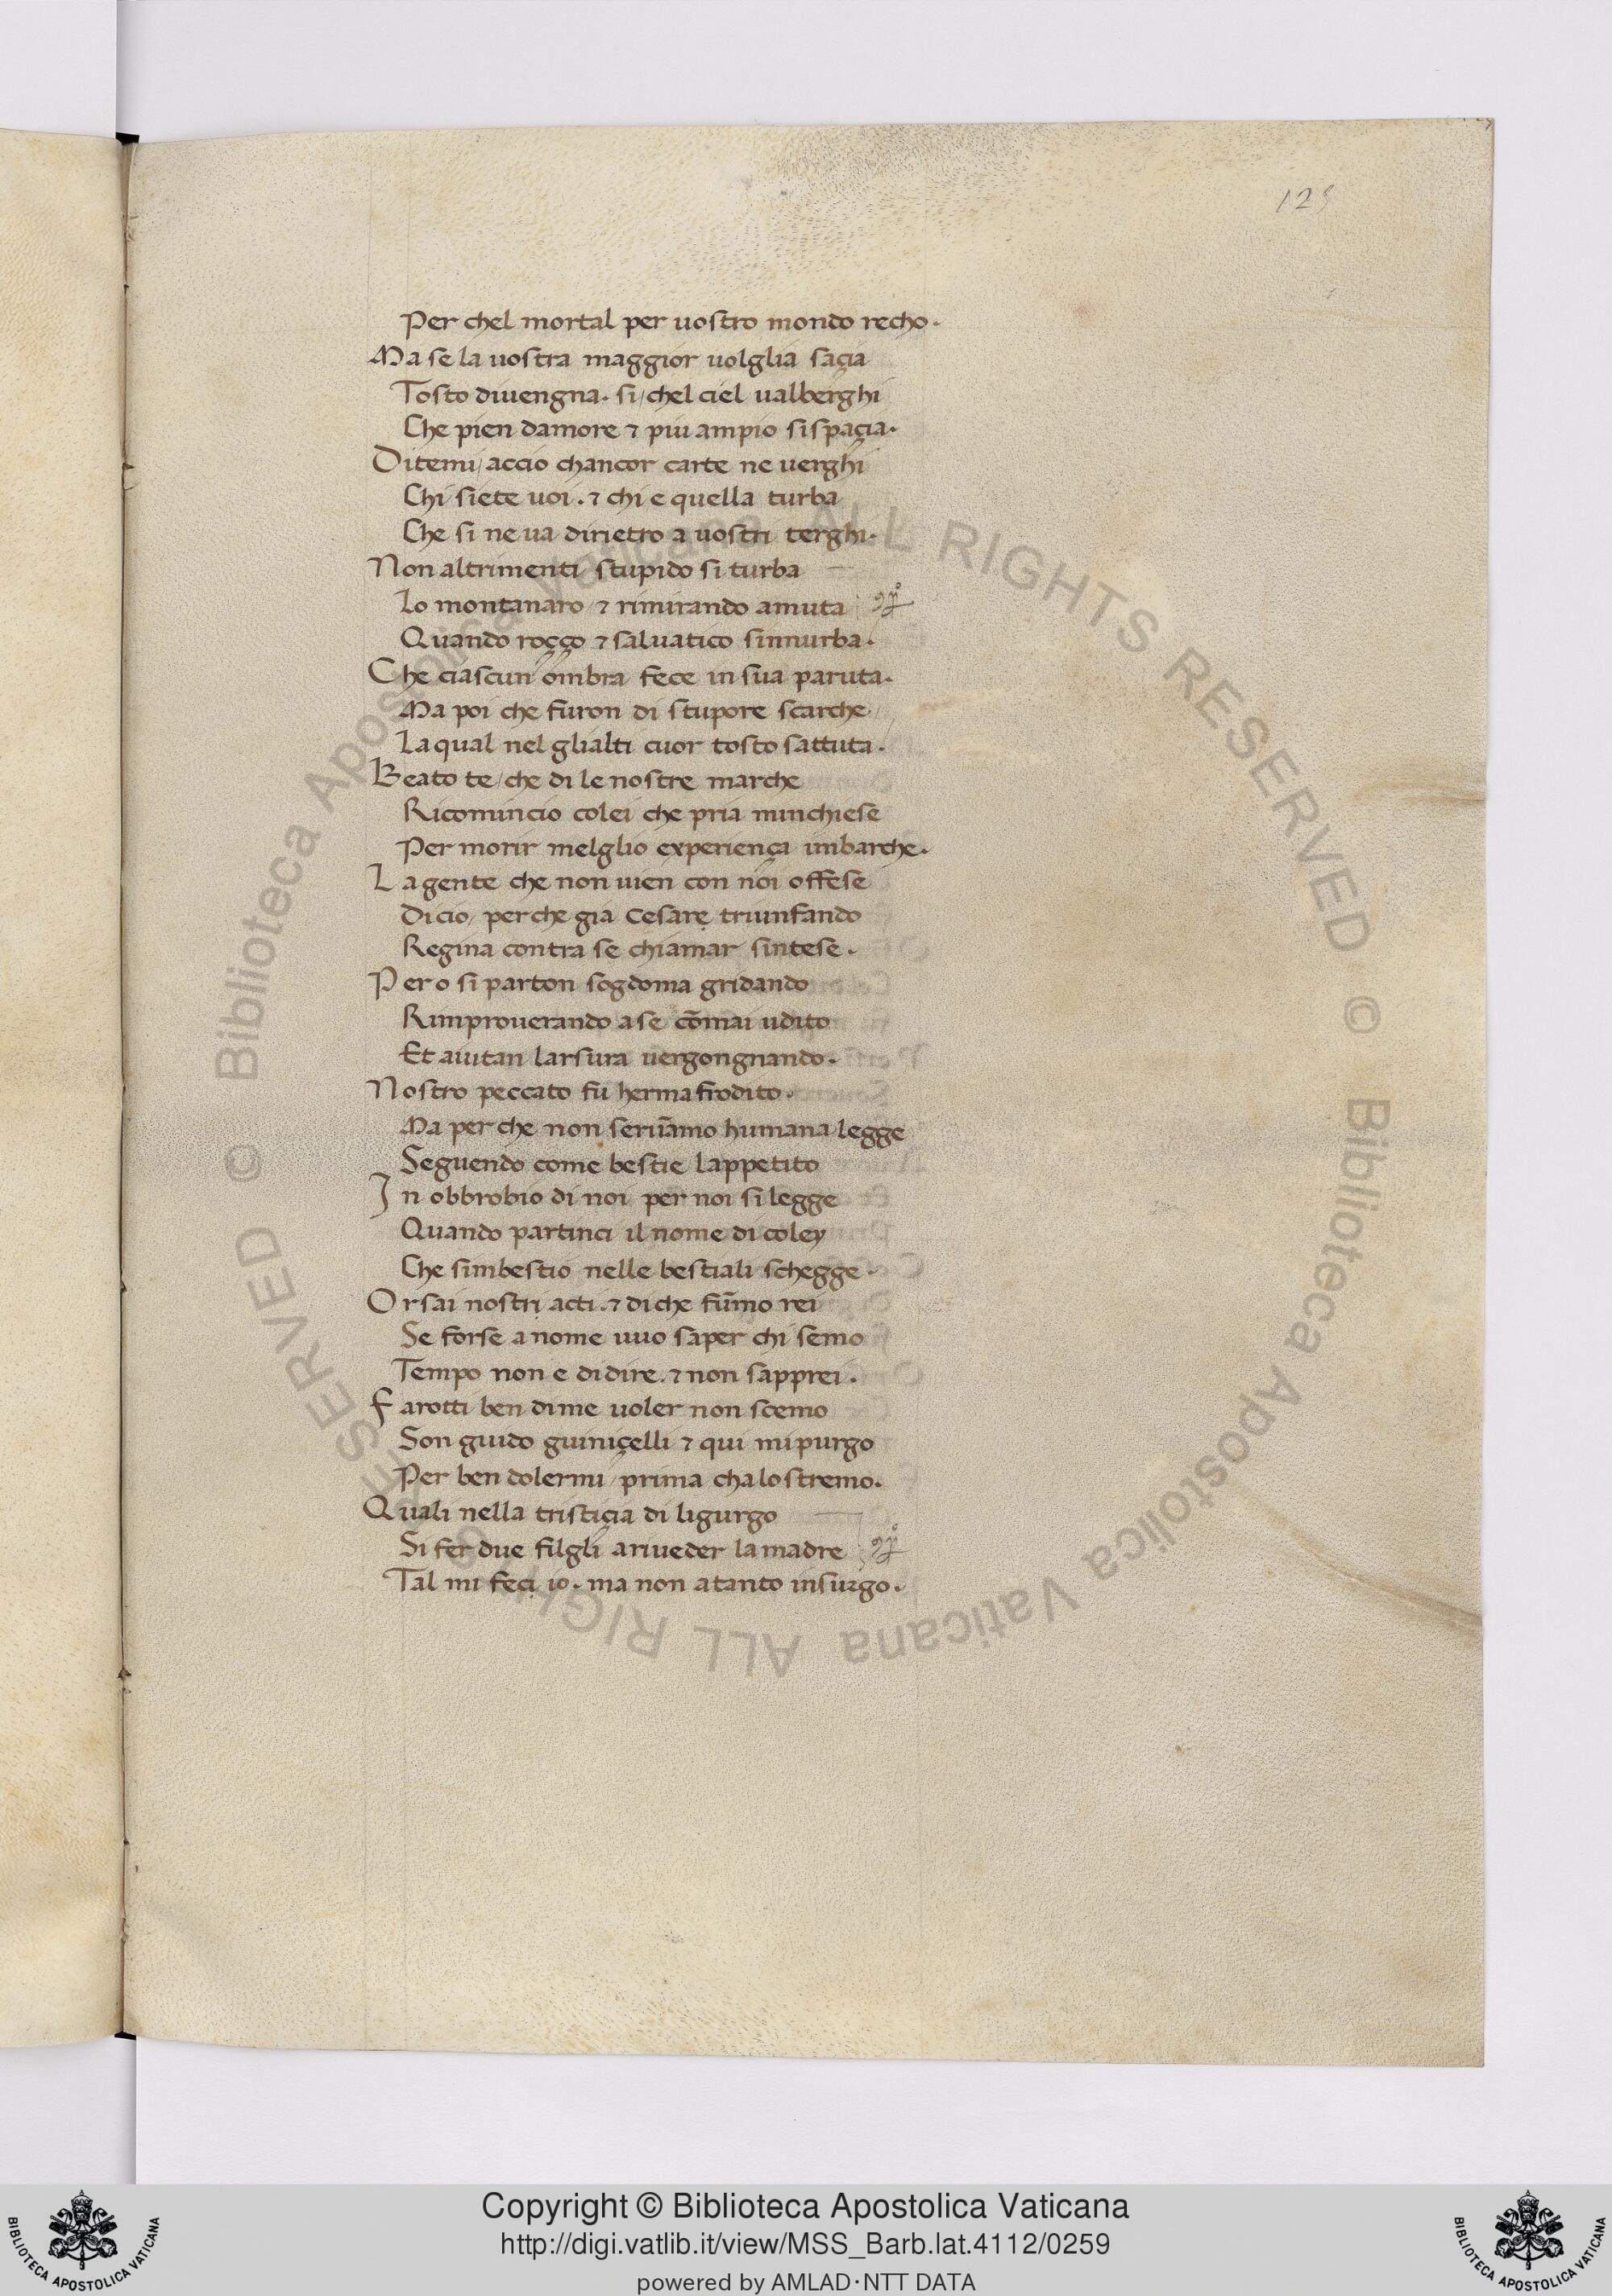 129
Per chel mortal per uostro mondo recho.
Ma se la uostra maggior uolglia saçia
Tosto diuengna. si/chel ciel ualberghi
Che pien damore ⁊ piu ampio sispaçia.
Ditemi/accio chancor carte ne uerghi
Chi siete uoi. ⁊ chi e quella turba
Che si ne ua dirietro a uostri terghi.
Non altrimenti stupido si turba
Lo montanaro/⁊ rimirando amuta
Quando roçço ⁊ saluatico sinnurba.
Che ciascun ombra fece in sua paruta.
Ma poi che furon di stupore scarche
La qual nel glialti cuor tosto sattuta.
Beato te/che di le nostre marche
Ricomincio colei che pria minchiese
Per morir melglio experiença imbarche.
La gente che non uien con noi offese
Dicio/perche gia Cesare triunfando
Regina contra se chiamar sintese.
Pero si parton sogdoma gridando
Rimprouerando a se cōmai udito
Et aiutan larsura uergongnando.
Nostro peccato fu hermafrodito.
Ma perche non seruāmo humana legge
Seguendo come bestie lappetito
In obbrobio di noi per noi si legge
Quando partinci il nome di coley
Che simbestio nelle bestiali schegge.
Or sai nostri atti. ⁊ di che fūmo rei
Se forse a nome uuo saper chi semo
Tempo non e didire. ⁊ non sapprei.
Farotti ben dime uoler non scemo
Son guido guiniçelli ⁊ qui mipurgo
Per ben dolermi/prima chalostremo.
Quali nella tristiçia di ligurgo
Si fer due filgli ariueder lamadre
Tal mi feci io. ma non atanto insurgo.
© Biblioteca Apostolica Vaticana ALL RIGHTS RESERVED © Biblioteca Apostolica Vaticana ALL RIGHTS RESERVED
Copyright © Biblioteca Apostolica Vaticana
http://digi.vatlib.it/view/MSS_Barb.lat.4112/0259
powered by AMLAD·NTT DATA
BIBLIOTECA APOSTOLICA VATICANA
BIBLIOTECA APOSTOLICA VATICANA